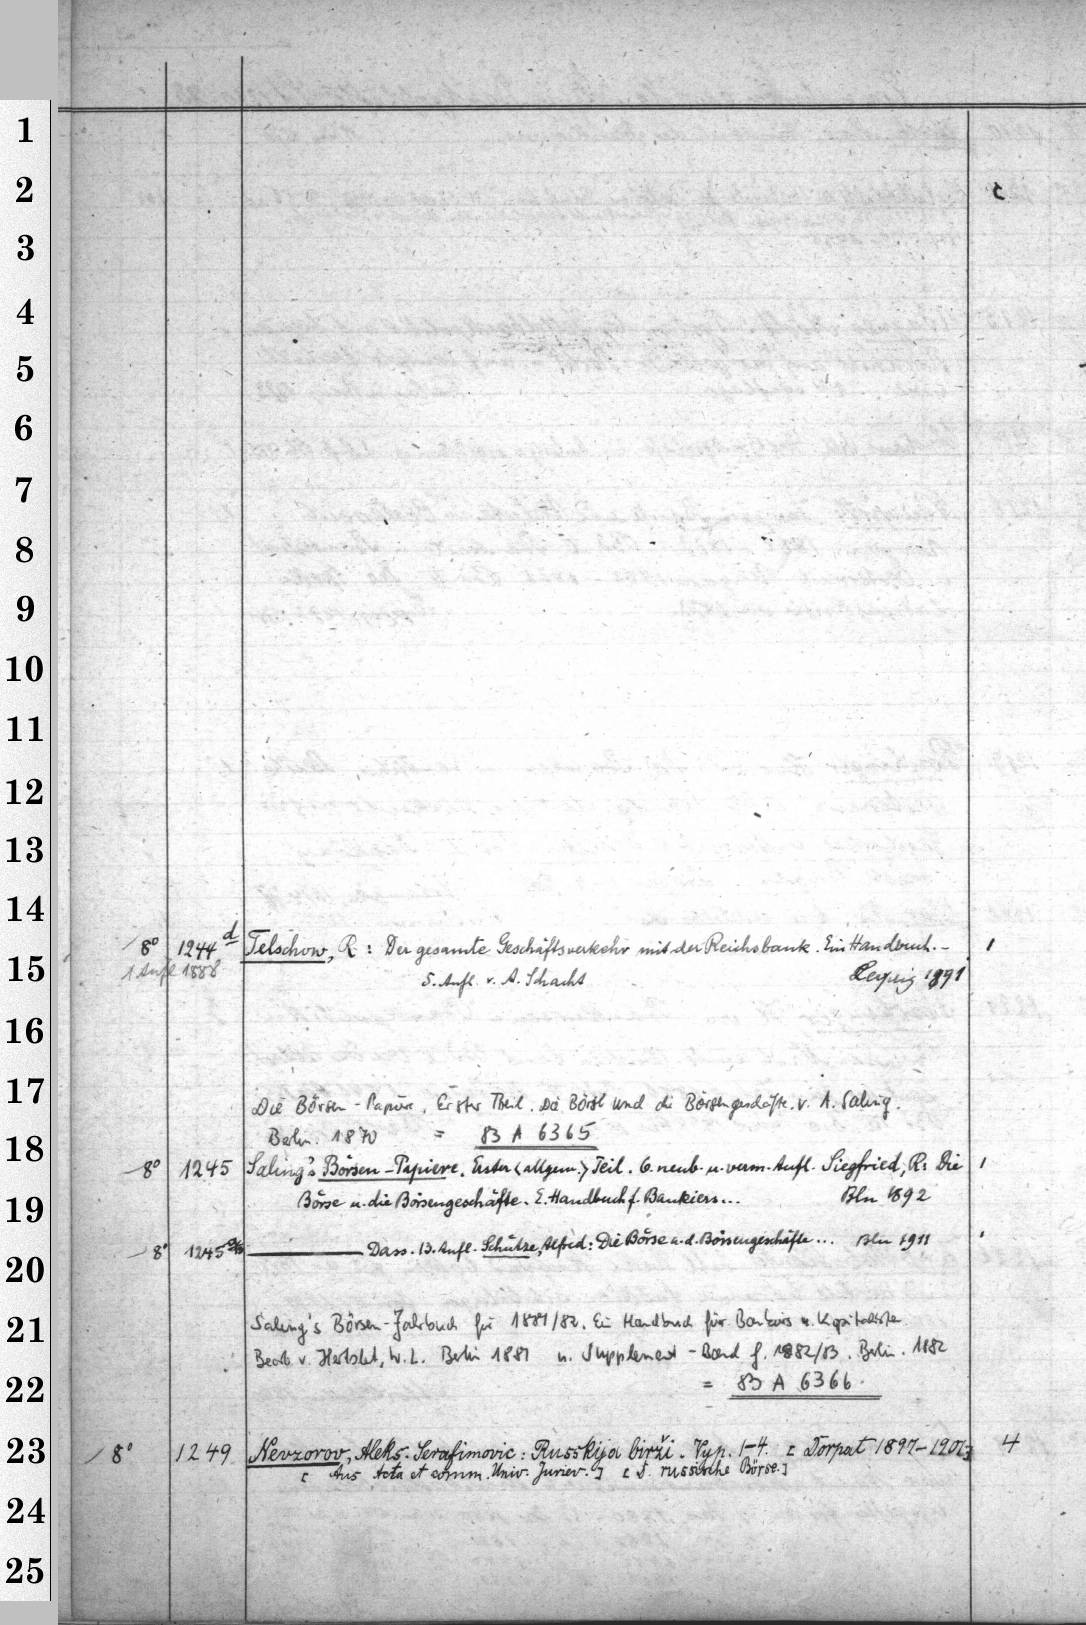 1
2
3
4
5
6
7
8
9
10
11
12
13
14
8° 1244 d Telschow, R: Der gesamte Geschäftsverkehr mit der Reichsbank. Ein Handbuch. – 1
15
1 Aufl 1888 5. Aufl. v. A. Schacht Leipzig 1891
16
17
Die Börsen-Papiere. Erster Theil. Die Börse und die Börsengeschäfte. v. A. Saling.
Berlin. 1870 = 83 A 6365
18
8° 1245 Saling's Börsen-Papiere. Erster <allgem.> Teil. 6. neub. u. verm. Aufl. Siegfried, R: Die 1
19
Börse u. die Börsengeschäfte. E. Handbuch f. Bankiers... Bln 1892
8° 1245 Dass. 13. Aufl. Schütze, Alfred: Die Börse u. d. Börsengeschäfte... Bln 1911 1
20
21
Saling's Börsen-Jahrbuch für 1881/82. Ein Handbuch für Bankiers u. Kapitalisten.
Bearb. v. Hertslet, W. L. Berlin 1881 u. Supplement-Band f. 1882/83. Berlin. 1882
22
= 83 A 6366.
23
8° 1249 Nevzorov, Aleks. Serafimovic: Russkija birži. Vyp. 1-4. [Dorpat 1897-1901] 4
[Aus Acta et comm. Univ. Juriev.] [D. russische Börse.]
24
25